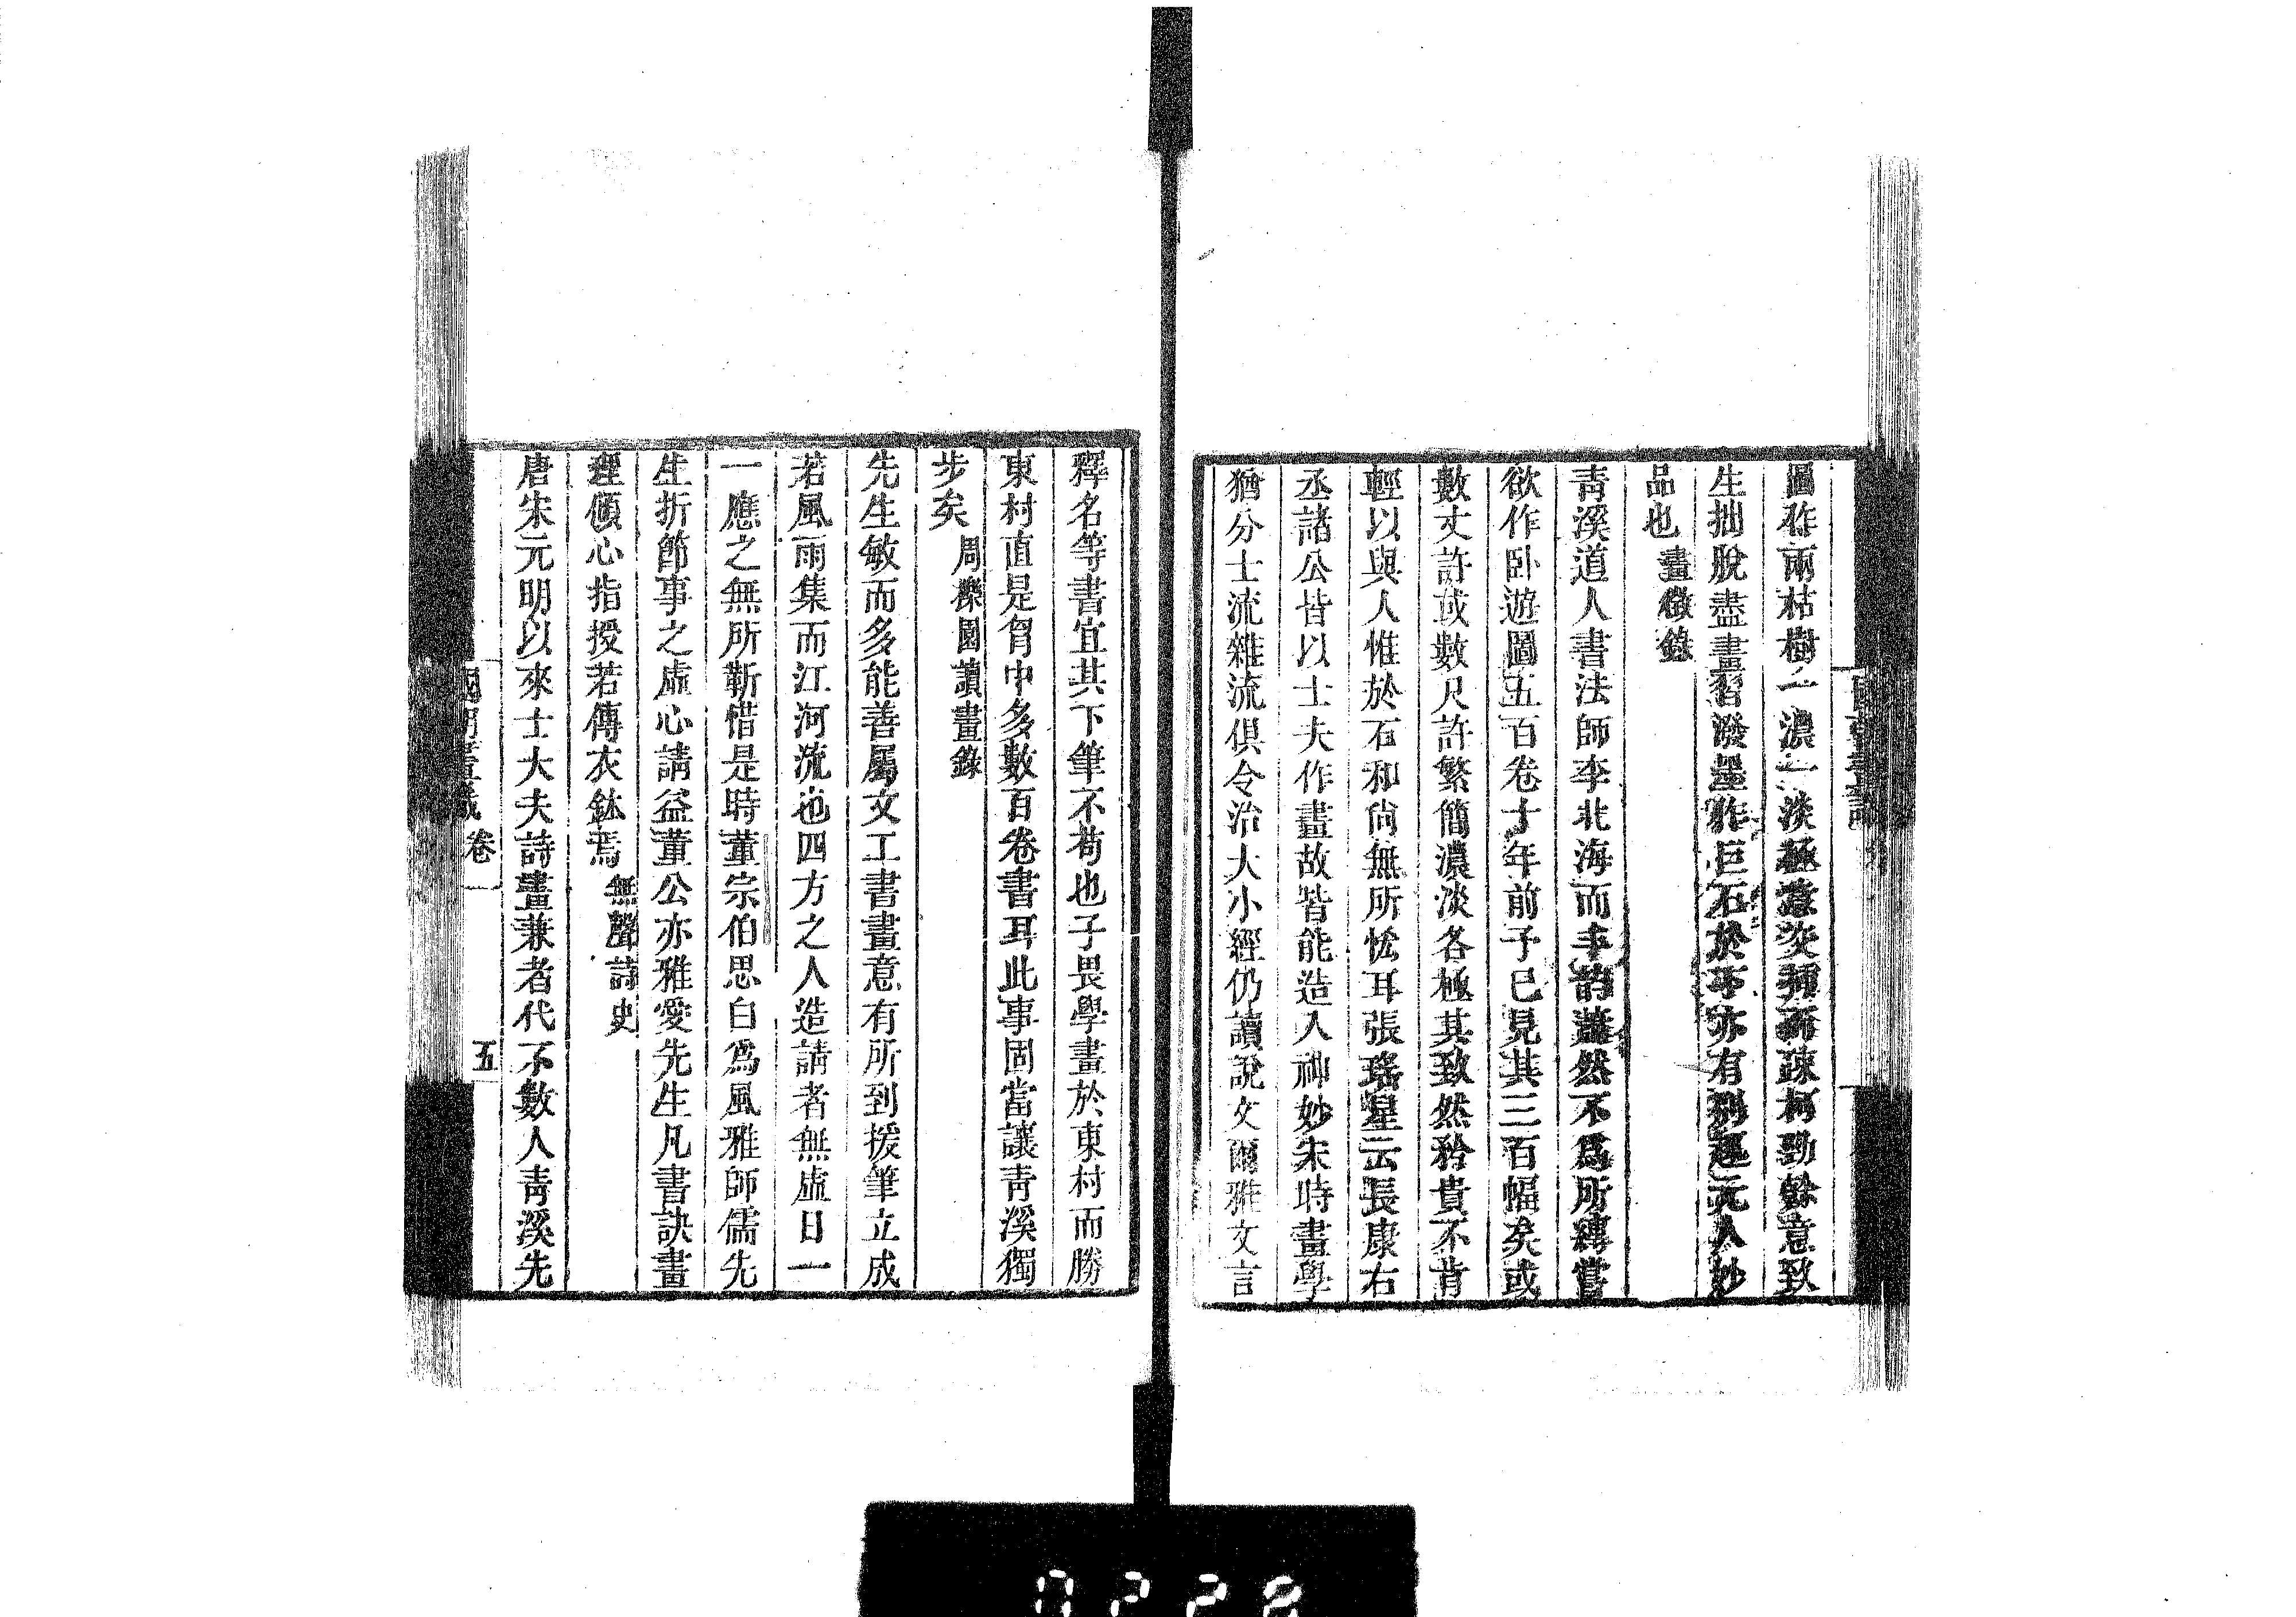 圖作兩枯樹一濃一淡極意交插而疎柯勁榦意致
生拙脫盡畫習潑墨作巨石於下亦有別趣元人妙
品也畫徵錄
青溪道人書法師李北海而丰韵蕭然不爲所縛嘗
欲作臥遊圖五百卷十年前予已見其三百幅矣或
數丈許或數尺許繁簡濃淡各極其致然矜貴不肯
輕以與人惟於石和尙無所恡耳張瑤星云長康右
丞諸公皆以士夫作畫故皆能造入神妙宋時畫學
猶分士流雜流俱令治大小經仍讀說文爾雅文言
釋名等書宜其下筆不苟也子畏學畫於東村而勝
東村直是胷中多數百卷書耳此事固當讓青溪獨
步矣周櫟園讀畫錄
先生敏而多能善屬文工書畫意有所到援筆立成
若風雨集而江河流也四方之人造請者無虛日一
一應之無所靳惜是時董宗伯思白爲風雅師儒先
生折節事之虛心請益董公亦雅愛先生凡書訣畫
理傾心指授若傳衣鉢焉無聲詩史
唐宋元明以來士大夫詩畫兼者代不數人青溪先
卷一
五